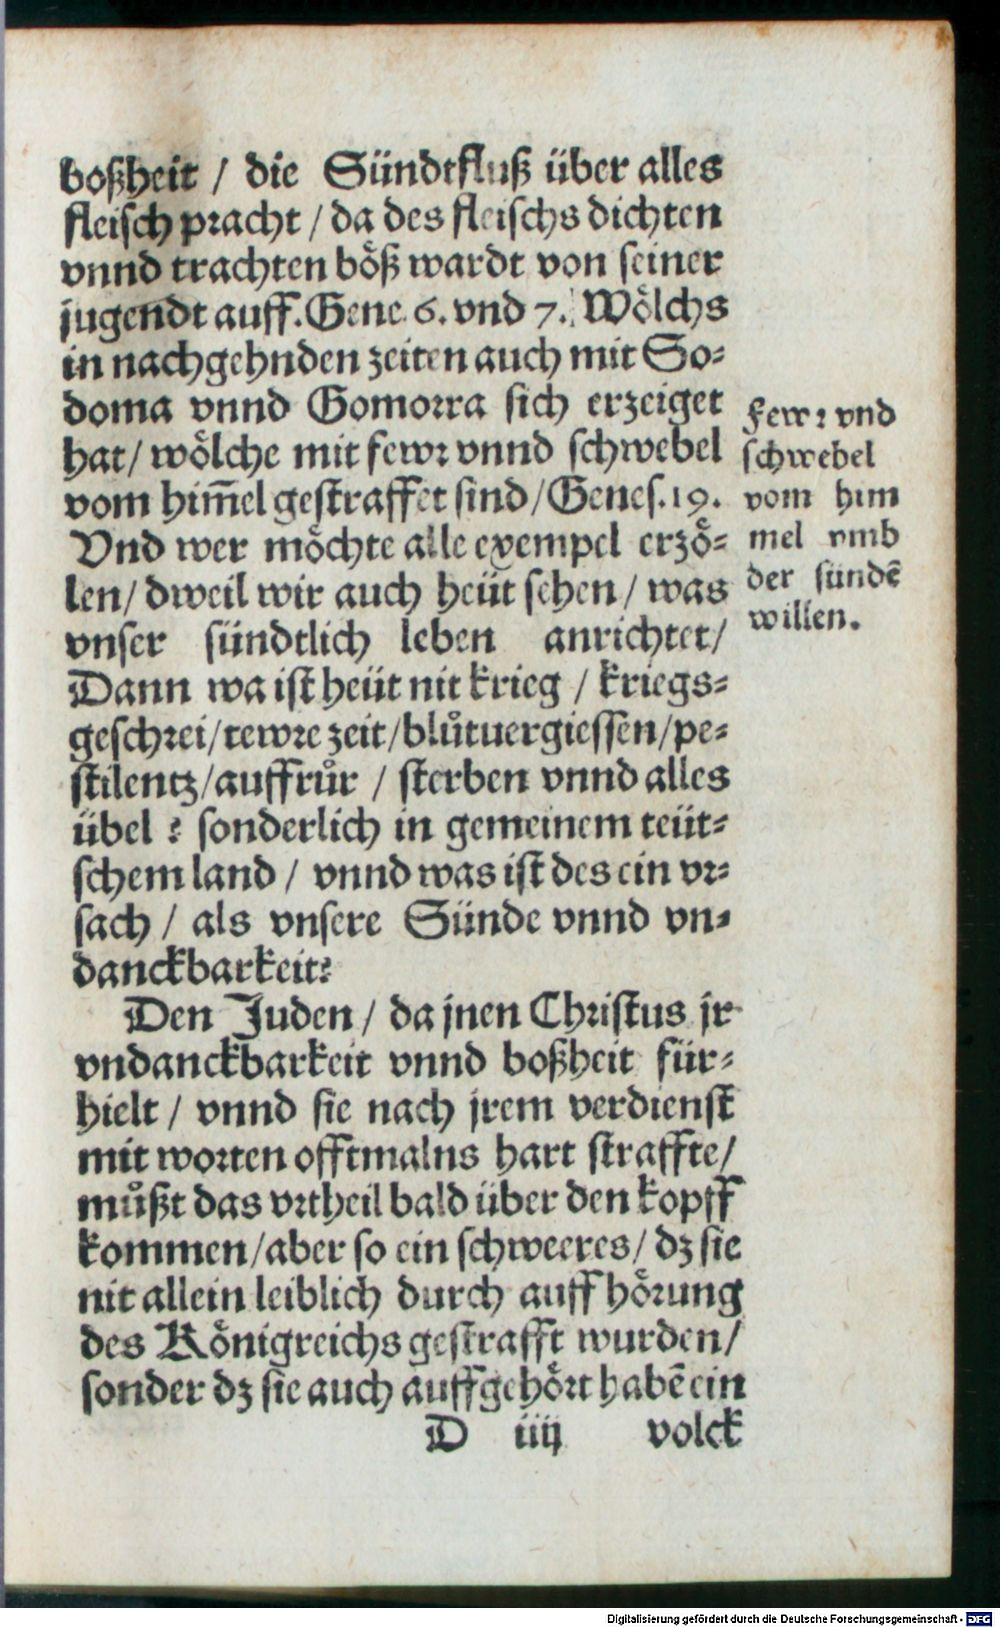 boßheit / die Sündtfluß über alles
fleisch pracht / da des fleischs dichten
vnnd trachten böß wardt von seiner
jugendt auff. Gene. 6. vnd 7. Wölchs
in nachgehnden zeiten auch mit So-
doma vnnd Gomorra sich erzeiget
hat / wölche mit fewr vnnd schwebel
vom him̄el gestraffet sind / Genes. 19.
Vnd wer möchte alle exempel erzö-
len / dweil wir auch heüt sehen / was
vnser sündtlich leben anrichtet /
Dann wa ist heüt nit krieg / kriegs-
geschrei / tewre zeit / blůtuergiessen / pe-
stilentz / auffrůr / sterben vnnd alles
übel ? sonderlich in gemeinem teüt-
schem land / vnnd was ist des ein vr-
sach / als vnsere Sünde vnnd vn-
danckbarkeit?
Den Juden / da jnen Christus jr
vndanckbarkeit vnnd boßheit für-
hielt / vnnd sie nach jrem verdienst
mit worten offtmalns hart straffte /
můßt das vrtheil bald über den kopff
kommen / aber so ein schweeres / dz sie
nit allein leiblich durch auff hörung
des Königreichs gestrafft wurden /
sonder dz sie auch auffgehört habē ein
D iiij volck
Fewr vnd
schwebel
vom him
mel vmb
der sündē
willen.
Digitalisierung gefördert durch die Deutsche Forschungsgemeinschaft - DFG